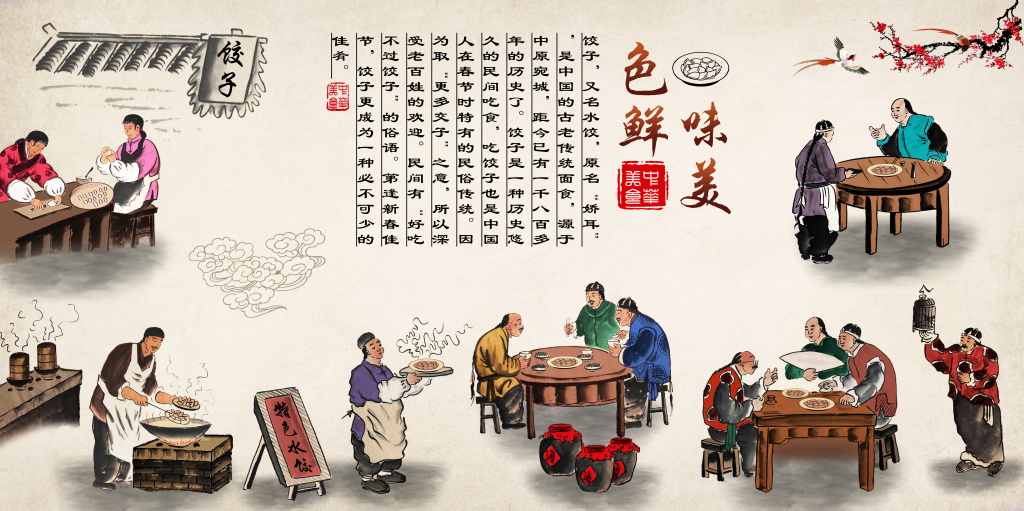 色鲜
味美
中华
美食
饺子，又名水饺，原名“娇耳”
，是中国的古老传统面食，源于
中原宛城，距今已有一千八百多
年的历史了。饺子是一种历史悠
久的民间吃食，吃饺子也是中国
人在春节时特有的民俗传统。因
为取“更多交子”之意，所以深
受老百姓的欢迎。民间有“好吃
不过饺子”的俗语。第逢新春佳
节，饺子更成为一种必不可少的
佳肴。
中华
美食
饺子
特色水饺
酒
酒
酒